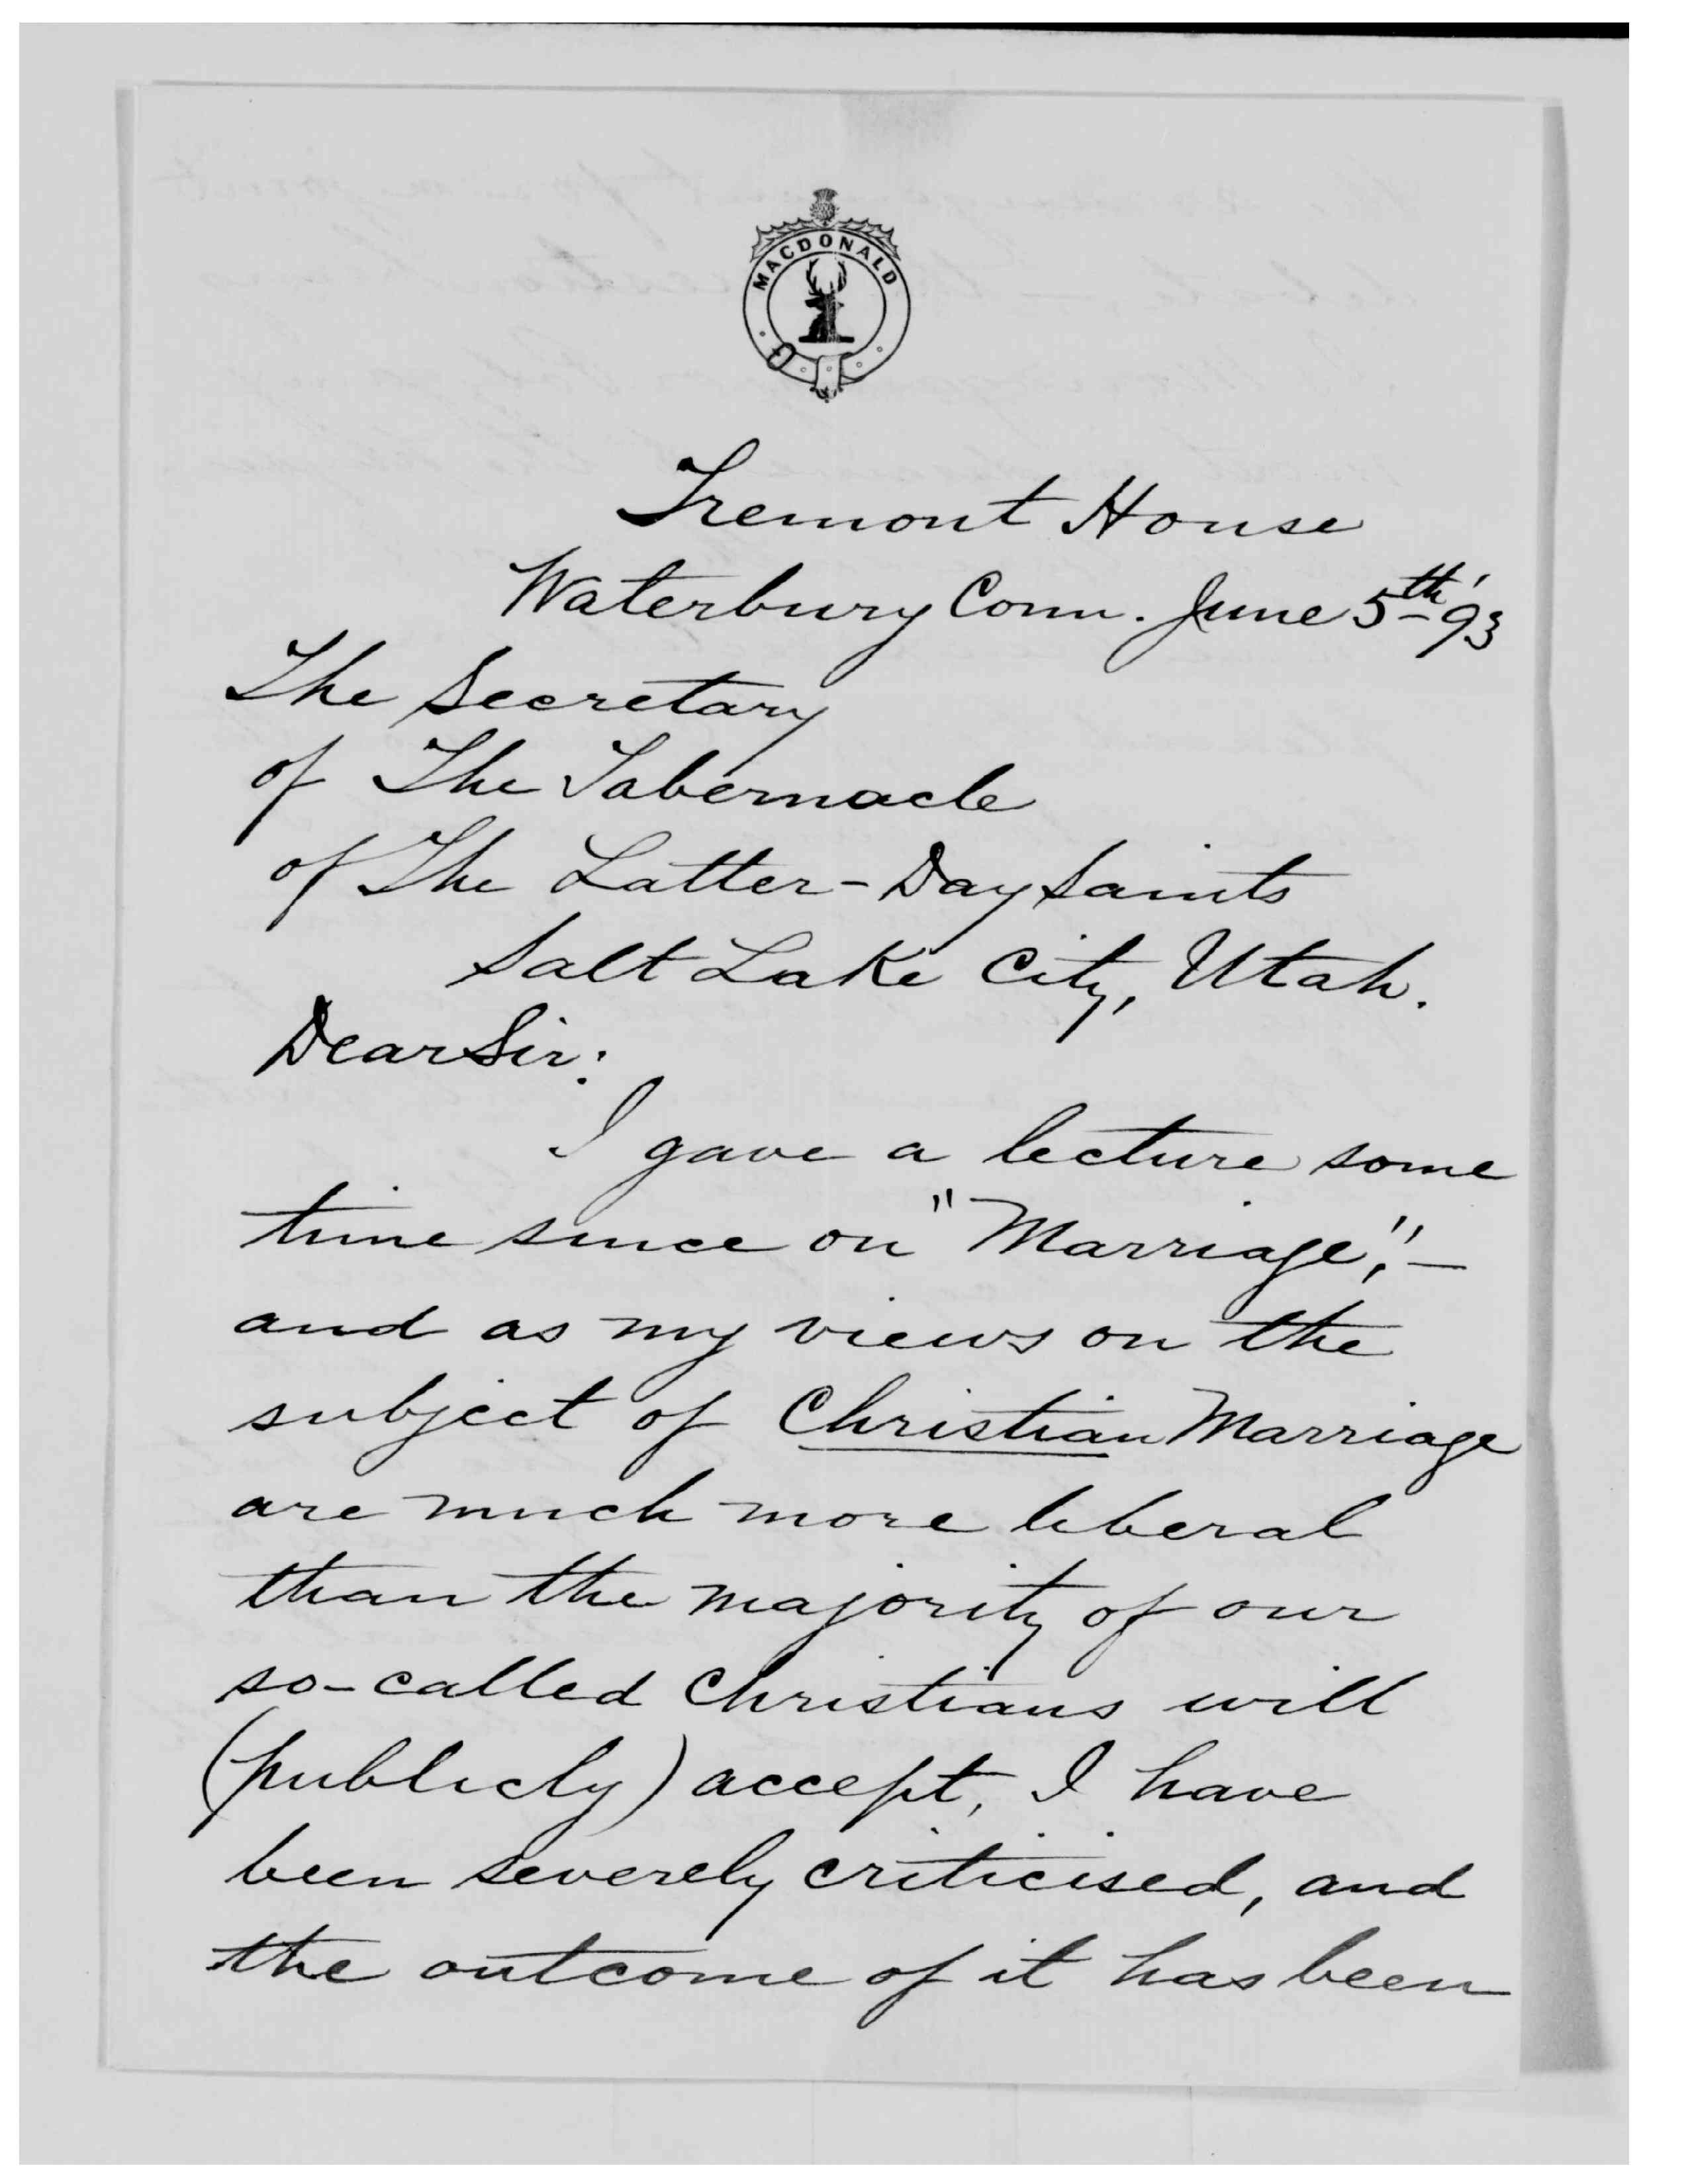 MACDONALD
Tremont House
Waterbury Conn. June 5th '93
The Secretary
of The Tabernacle
of The Latter-Day Saints
Salt Lake City, Utah.
Dear Sir:
I gave a lecture some
time since on "Marriage,"—
and as my views on the
subject of Christian Marriage
are much more liberal
than the majority of our
so-called Christians will
(publicly) accept, I have
been severely criticised, and
the outcome of it has been